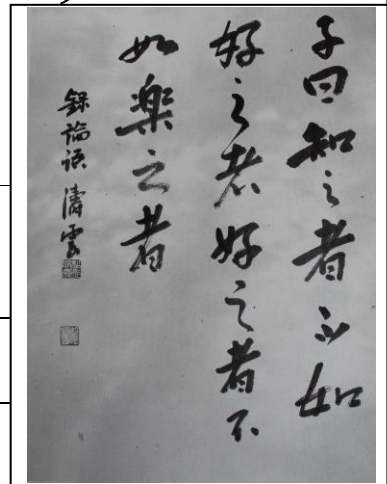 子曰知之者不如
好之者好之者不
如樂之者
錄論語 濤雲